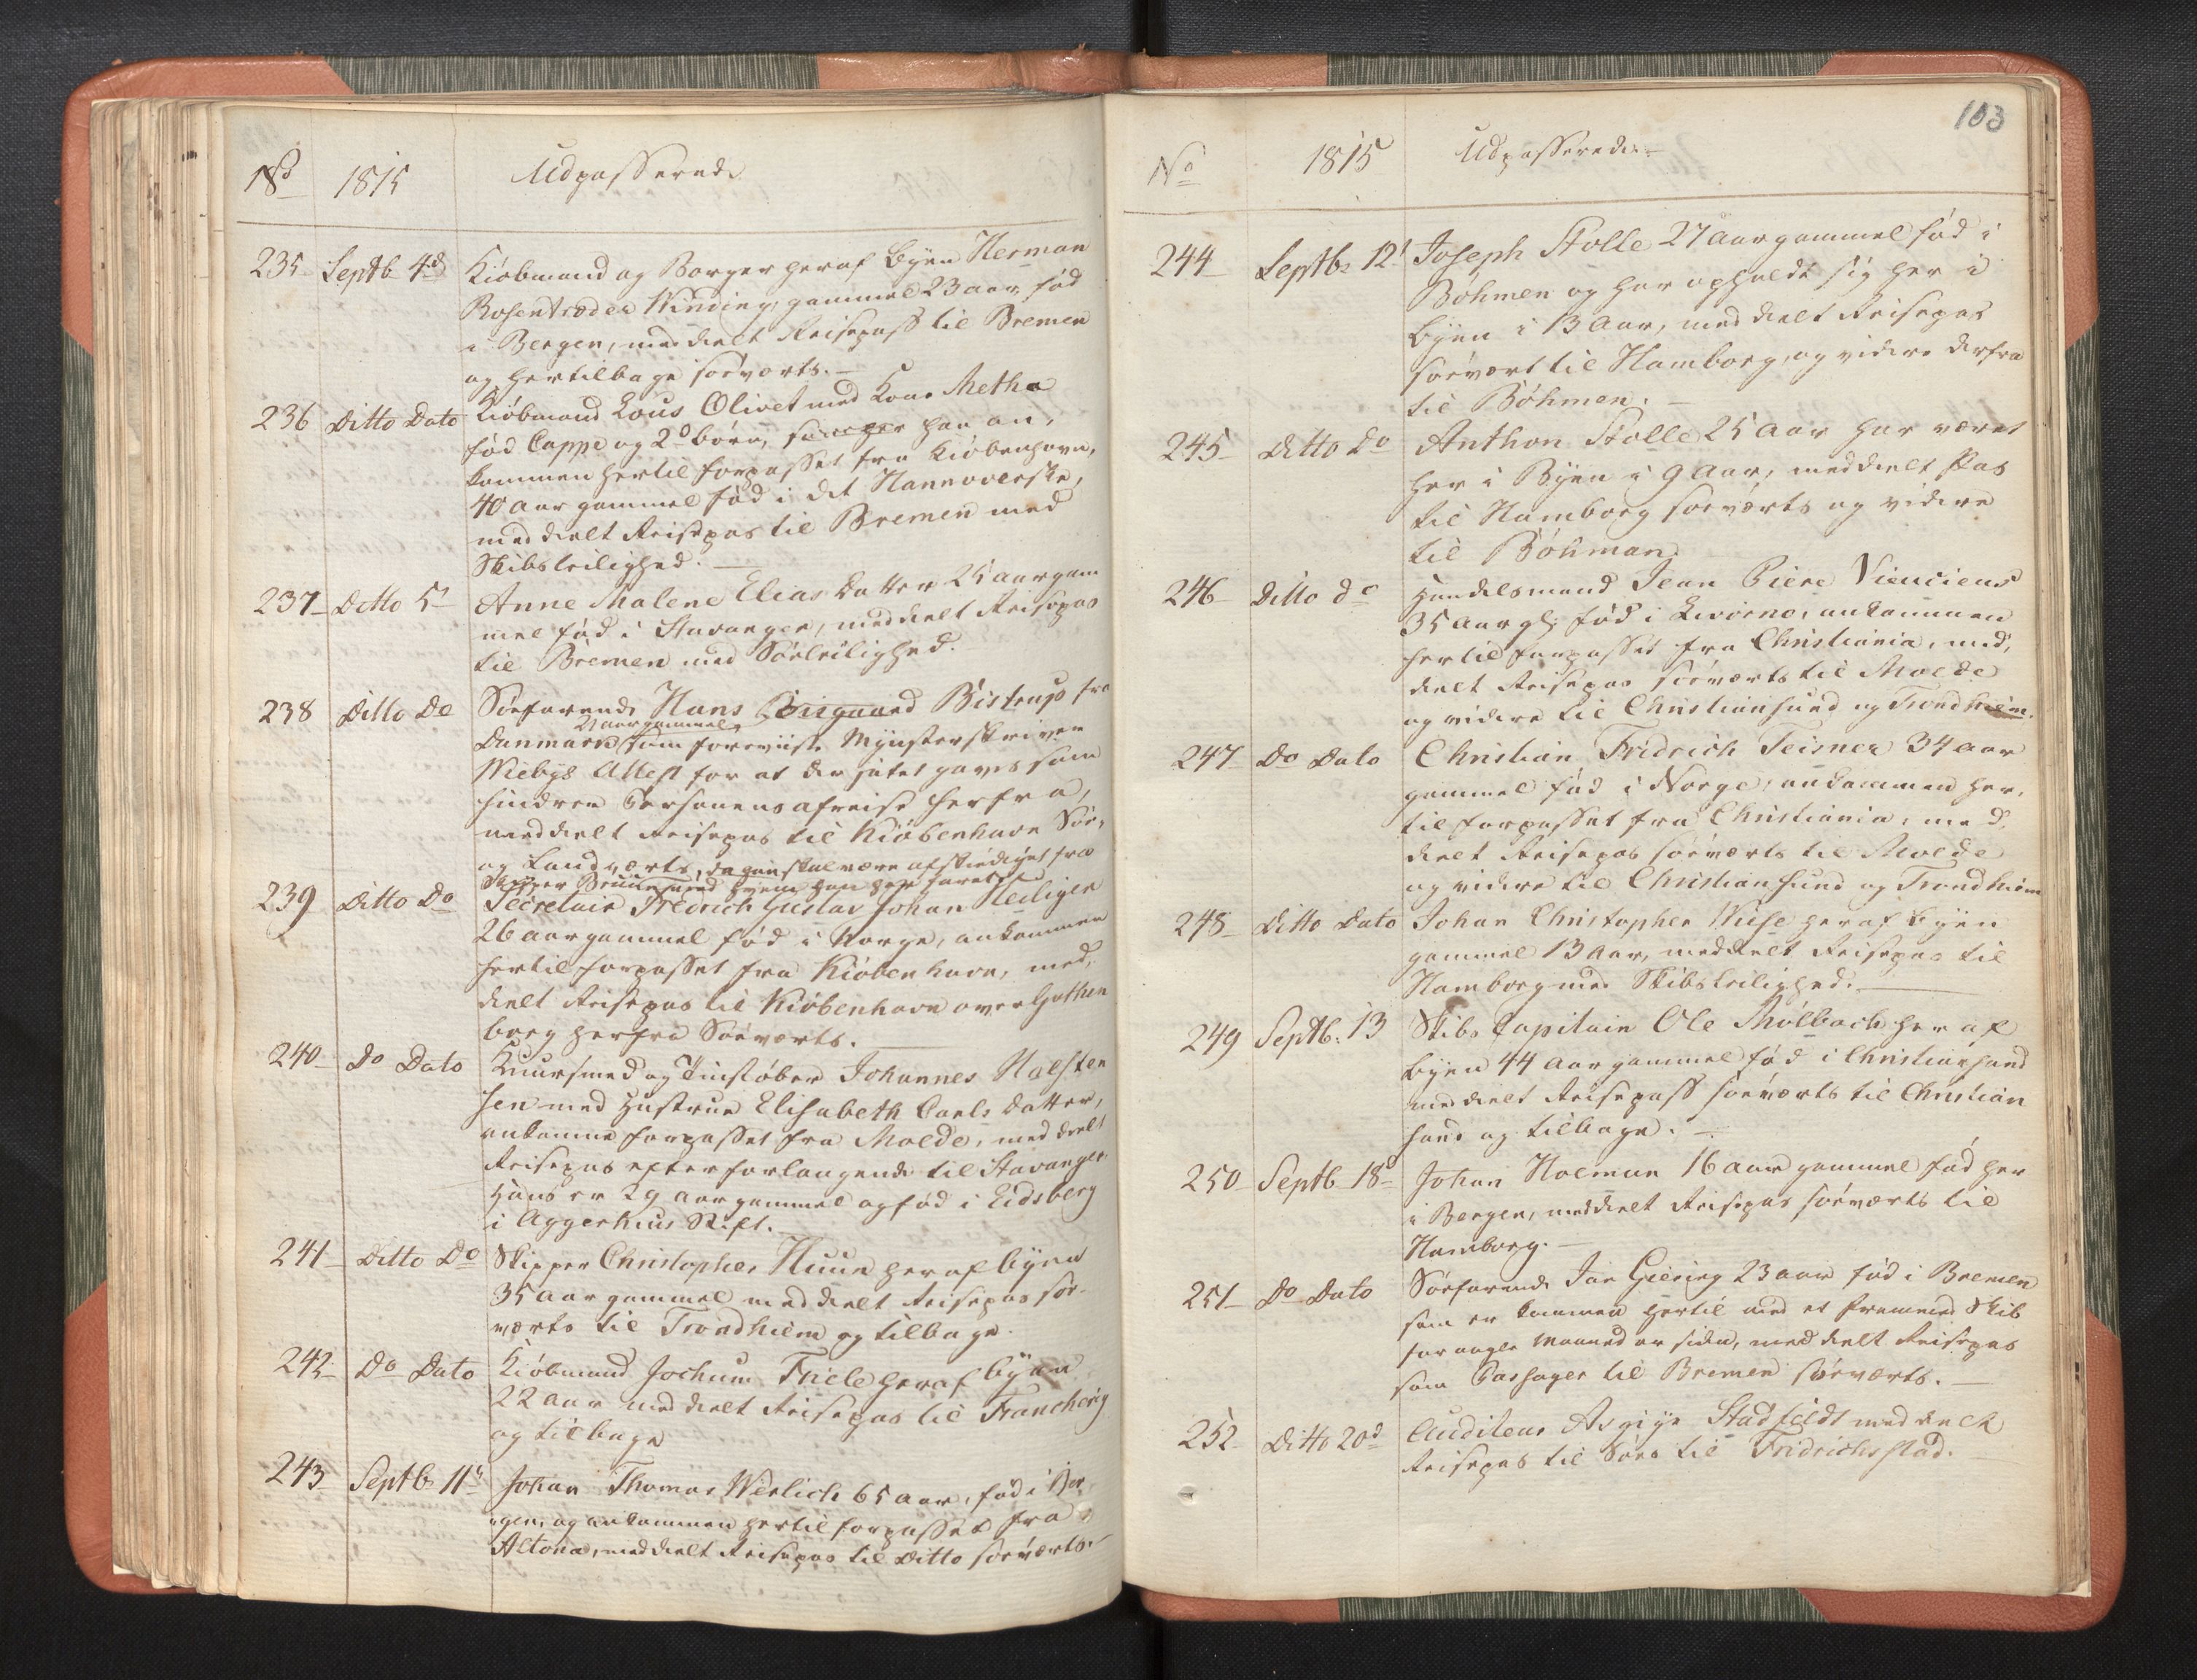 No 1815 Udpasserede
235 Septb 4d Kiøbmand og Borger her af Byen Herman
Rosentræder Winding, gammel 23 aar, fød
i Bergen, meddeelt Reisepass til Bremen
og hertilbage søeverts.
236 Ditto Dato Kiøbmand Lous Olivet med Kone Metha
fød Cappe og 2de børn, som her han an,
kommen hertil forpasset fra Kiøbenhavn,
40 aar gammel fød i det Hannoverske,
meddeelt Reisepas til Bremen med
Skibsleilighed.
237 Ditto 5t Anne Malene Elias Datter 25 aar gam
mel fød i Stavanger, meddeelt Reisepas
til Bremen med Søeleilighed.
238 Ditto Do Søefarende Hans Bistrup fra
21 aar gammel
Danmark, som foreviiste Mynsterskriver
Wiebys Attest for at der intet haves som
hindrer Personens afreise herfra,
meddeelt Reisepas til Kiøbenhavn Søe,
og Landværts, da han skal være afskediget fra
Skipper med hvem han har faret
239 Ditto Do Secretair Fredrich Gustav Johan Heiliger
26 aar gammel fød i Norge, ankommen
hertil forpasset fra Kiøbenhavn, med,
deelt Reisepas til Kiøbenhavn over Gothen
borg herfra Søeværts.
240 Do Dato Knursmed og Tinstøber Johannes Halsten
sen med Hustrue Elisabeth Carls Datter,
ankomne forpasset fra Molde, meddeelt
Reisepas efter forlangende til Stavanger
Hans er 29 aar gammel og fød i Eidsberg
i Aggerhuus Stift.
241 Ditto Do Skipper Christopher Huun her af byen
35 aar gammel meddeelt Reisepas søe-
værts til Trondhiem og tilbage.
242 Do Dato Kiøbmand Jochum Friele her af byen
22 aar meddeelt Reisepas til
og tilbage
243 Septb 11t Johan Thomas Werlich 65 aar, fød i Ber
gen, og ankommen hertil forpasset fra
Altona, meddeelt Reisepas til Ditto søeværts.
103
No 1815 Udpasserede
244 Septb: 12t Joseph Stolle 27 aar gammel fød i
Bøhmen og har opholdt sig her i
byen i 13 Aar, meddeelt Reisepas
søevært til Hamborg, og videre derfra
til Bøhmen.
245 Ditto Do Anthon Stolle 25 aar har været
her i Byen i 9 Aar, meddeelt Pas
til Hamborg søeværts og videre
til Bøhmen
246 Ditto do Handelsmand Jean Piere Vienciens
35 aar gl. fød i Livorno, ankommen
hertil forpasset fra Christiania, med,
deelt Reisepas søeværts til Molde
og videre til Christiansund og Trondhiem.
247 Do Dato Christian Fridrich Teisner 34 aar
gammel fød i Norge, ankommen her,
til forpasset fra Christiania, med,
deelt Reisepas søeværts til Molde
og videre til Christiansund og Trondhiem
248 Ditto Dato Johan Christopher Wiese her af byen
gammel 13 Aar, meddeelt Reisepas til
Hamborg med Skibsleilighed.
249 Septb: 13 Skibs Capitain Ole Mølbach her af
byen 44 Aar gammel fød i Christiansund
meddeelt Reisepass søeværts til Christian
sund og tilbage.
250 Septb 18 Johan Holman 16 aar gammel fød her
i Bergen, meddeelt Reisepas søeværts til
Hamborg.
251 Do Dato Søefarende Jan Giering 23 aar fød i Bremen
som er kommen hertil med et fremmed Skib
for nogle Maaneder siden, meddeelt Reisepas
som Passager til Bremen søeværts.
252 Ditto 20d Auditeur Stadfeldt meddeelt
Reisepas til Søes til Fridrichsstad.